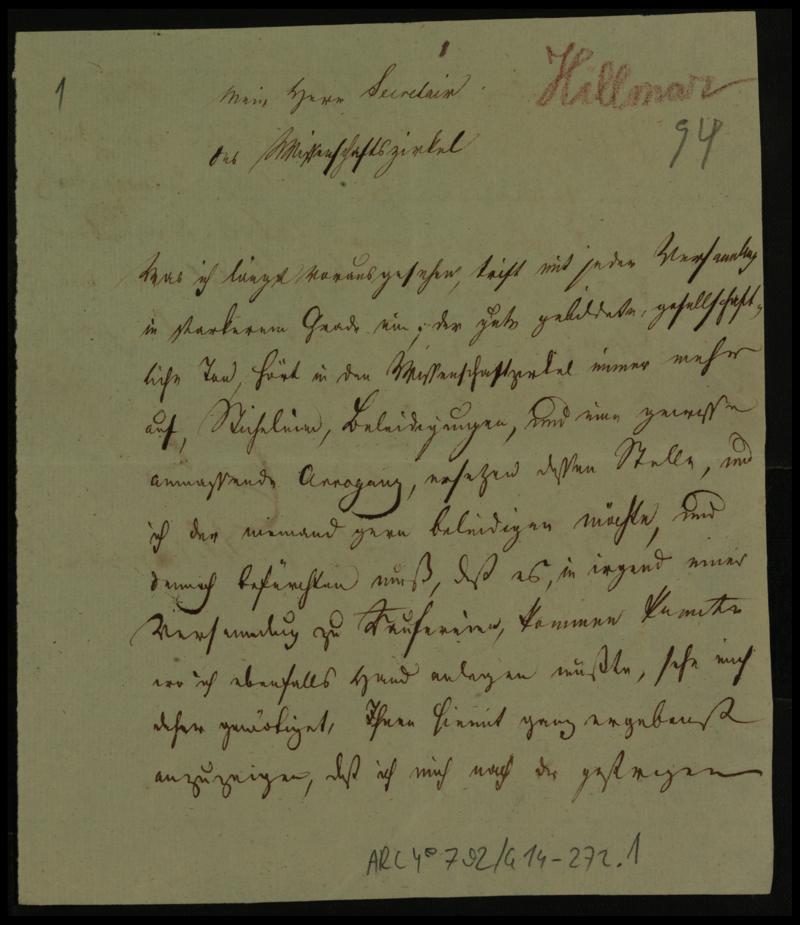 1
Hillmar
94
Mein Herr Secretair
des Wissenschaftszirkel
Was ich längst vorausgesehen, trift mit jeder Versamlug
in starkerem Grade ein; der gute gebildete, gesellschaft-
liche Ton, hört in den Wissenschaftzirkel immer mehr
auf, Sticheleien, Beleidigungen, und eine gewisse
anmassende Arroganz, ersetzen dessen Stelle, und
ich der niemand gern beleidigen möchte, und
dennoch befürchten muß, daß es, in irgend einer
Versammlug zu Raufereien, kommen kannte
wo ich ebenfalls Hand anlegen müßte, sehe mich
daher genötiget, Ihnen hiemit ganz ergebenst
anzuzeigen, daß ich mich nach der gestrigen
ARC 4° 792/G14-272.1